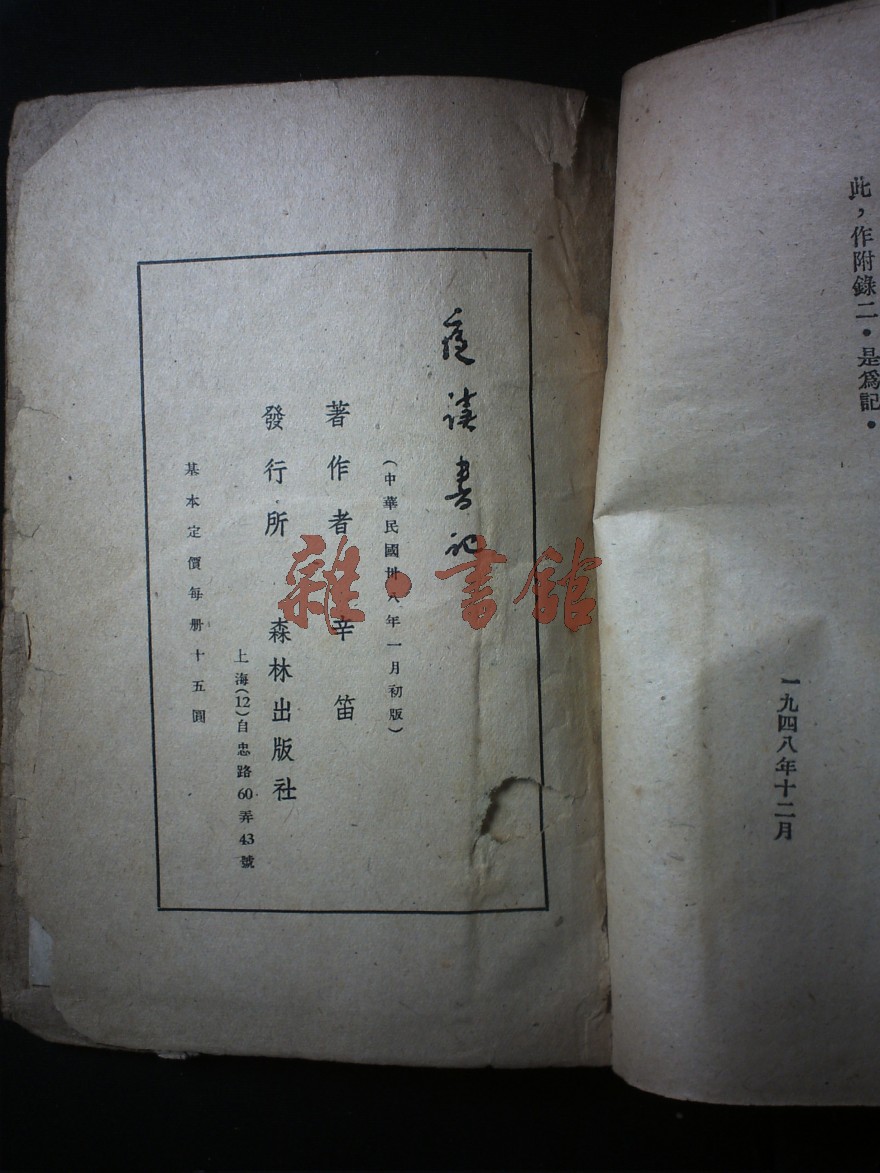 此，作附錄二。是爲記。
一九四八年十二月
夜讀書記
(中華民國卅八年一月初版)
著作者 辛笛
發行所 森林出版社
上海(12)自忠路60弄43號
基本定價每册十五圓
雜·書館